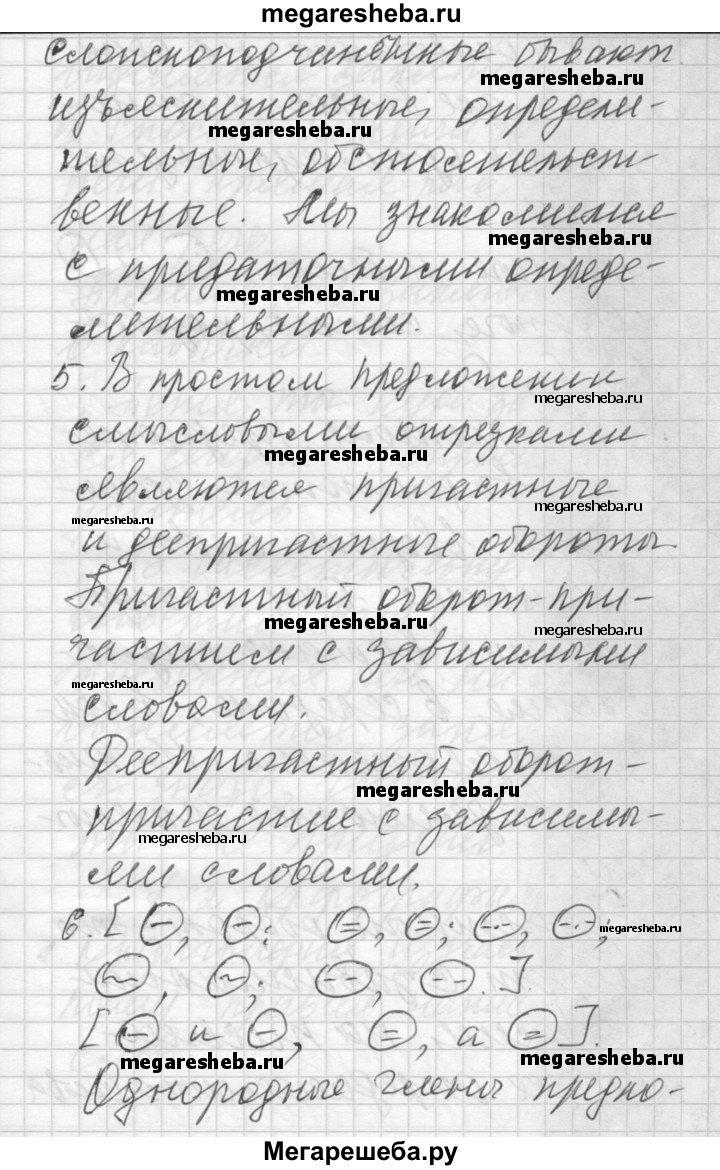 megaresheba.ru
Сложноподчинённые бывают
megaresheba.ru
изъяснительные, определи-
megaresheba.ru
тельные, обстоятельст-
венные. Мы знакомимся
megaresheba.ru
с придаточными опреде-
megaresheba.ru
лительными.
5. В простом предложении
megaresheba.ru
смысловыми отрезками
megaresheba.ru
являются причастные
megaresheba.ru
megaresheba.ru
и деепричастные обороты
Причастный оборот-при-
megaresheba.ru
megaresheba.ru
частием с зависимыми
megaresheba.ru
словами.
Деепричастный оборот-
megaresheba.ru
причастие с зависимы-
megaresheba.ru
ми словами.
6. [ , ; , ; , ;
megaresheba.ru
, ; , .].
[ и , , а ].
megaresheba.ru
megaresheba.ru
Однородные члены предло-
Мегарешеба.ру